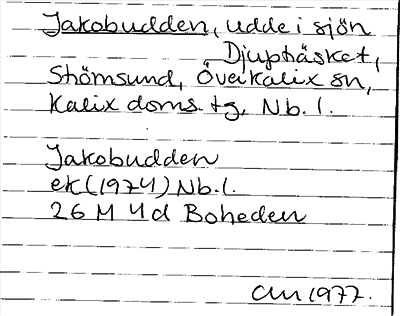 Jakobudden, udde i sjön
Djupträsket,
Stömsund, Överkalix sn,
Kalix doms. tg, Nb. l.
Jakobudden
ek (1974) Nb. l.
26 M 4d Boheden
CM 1977.